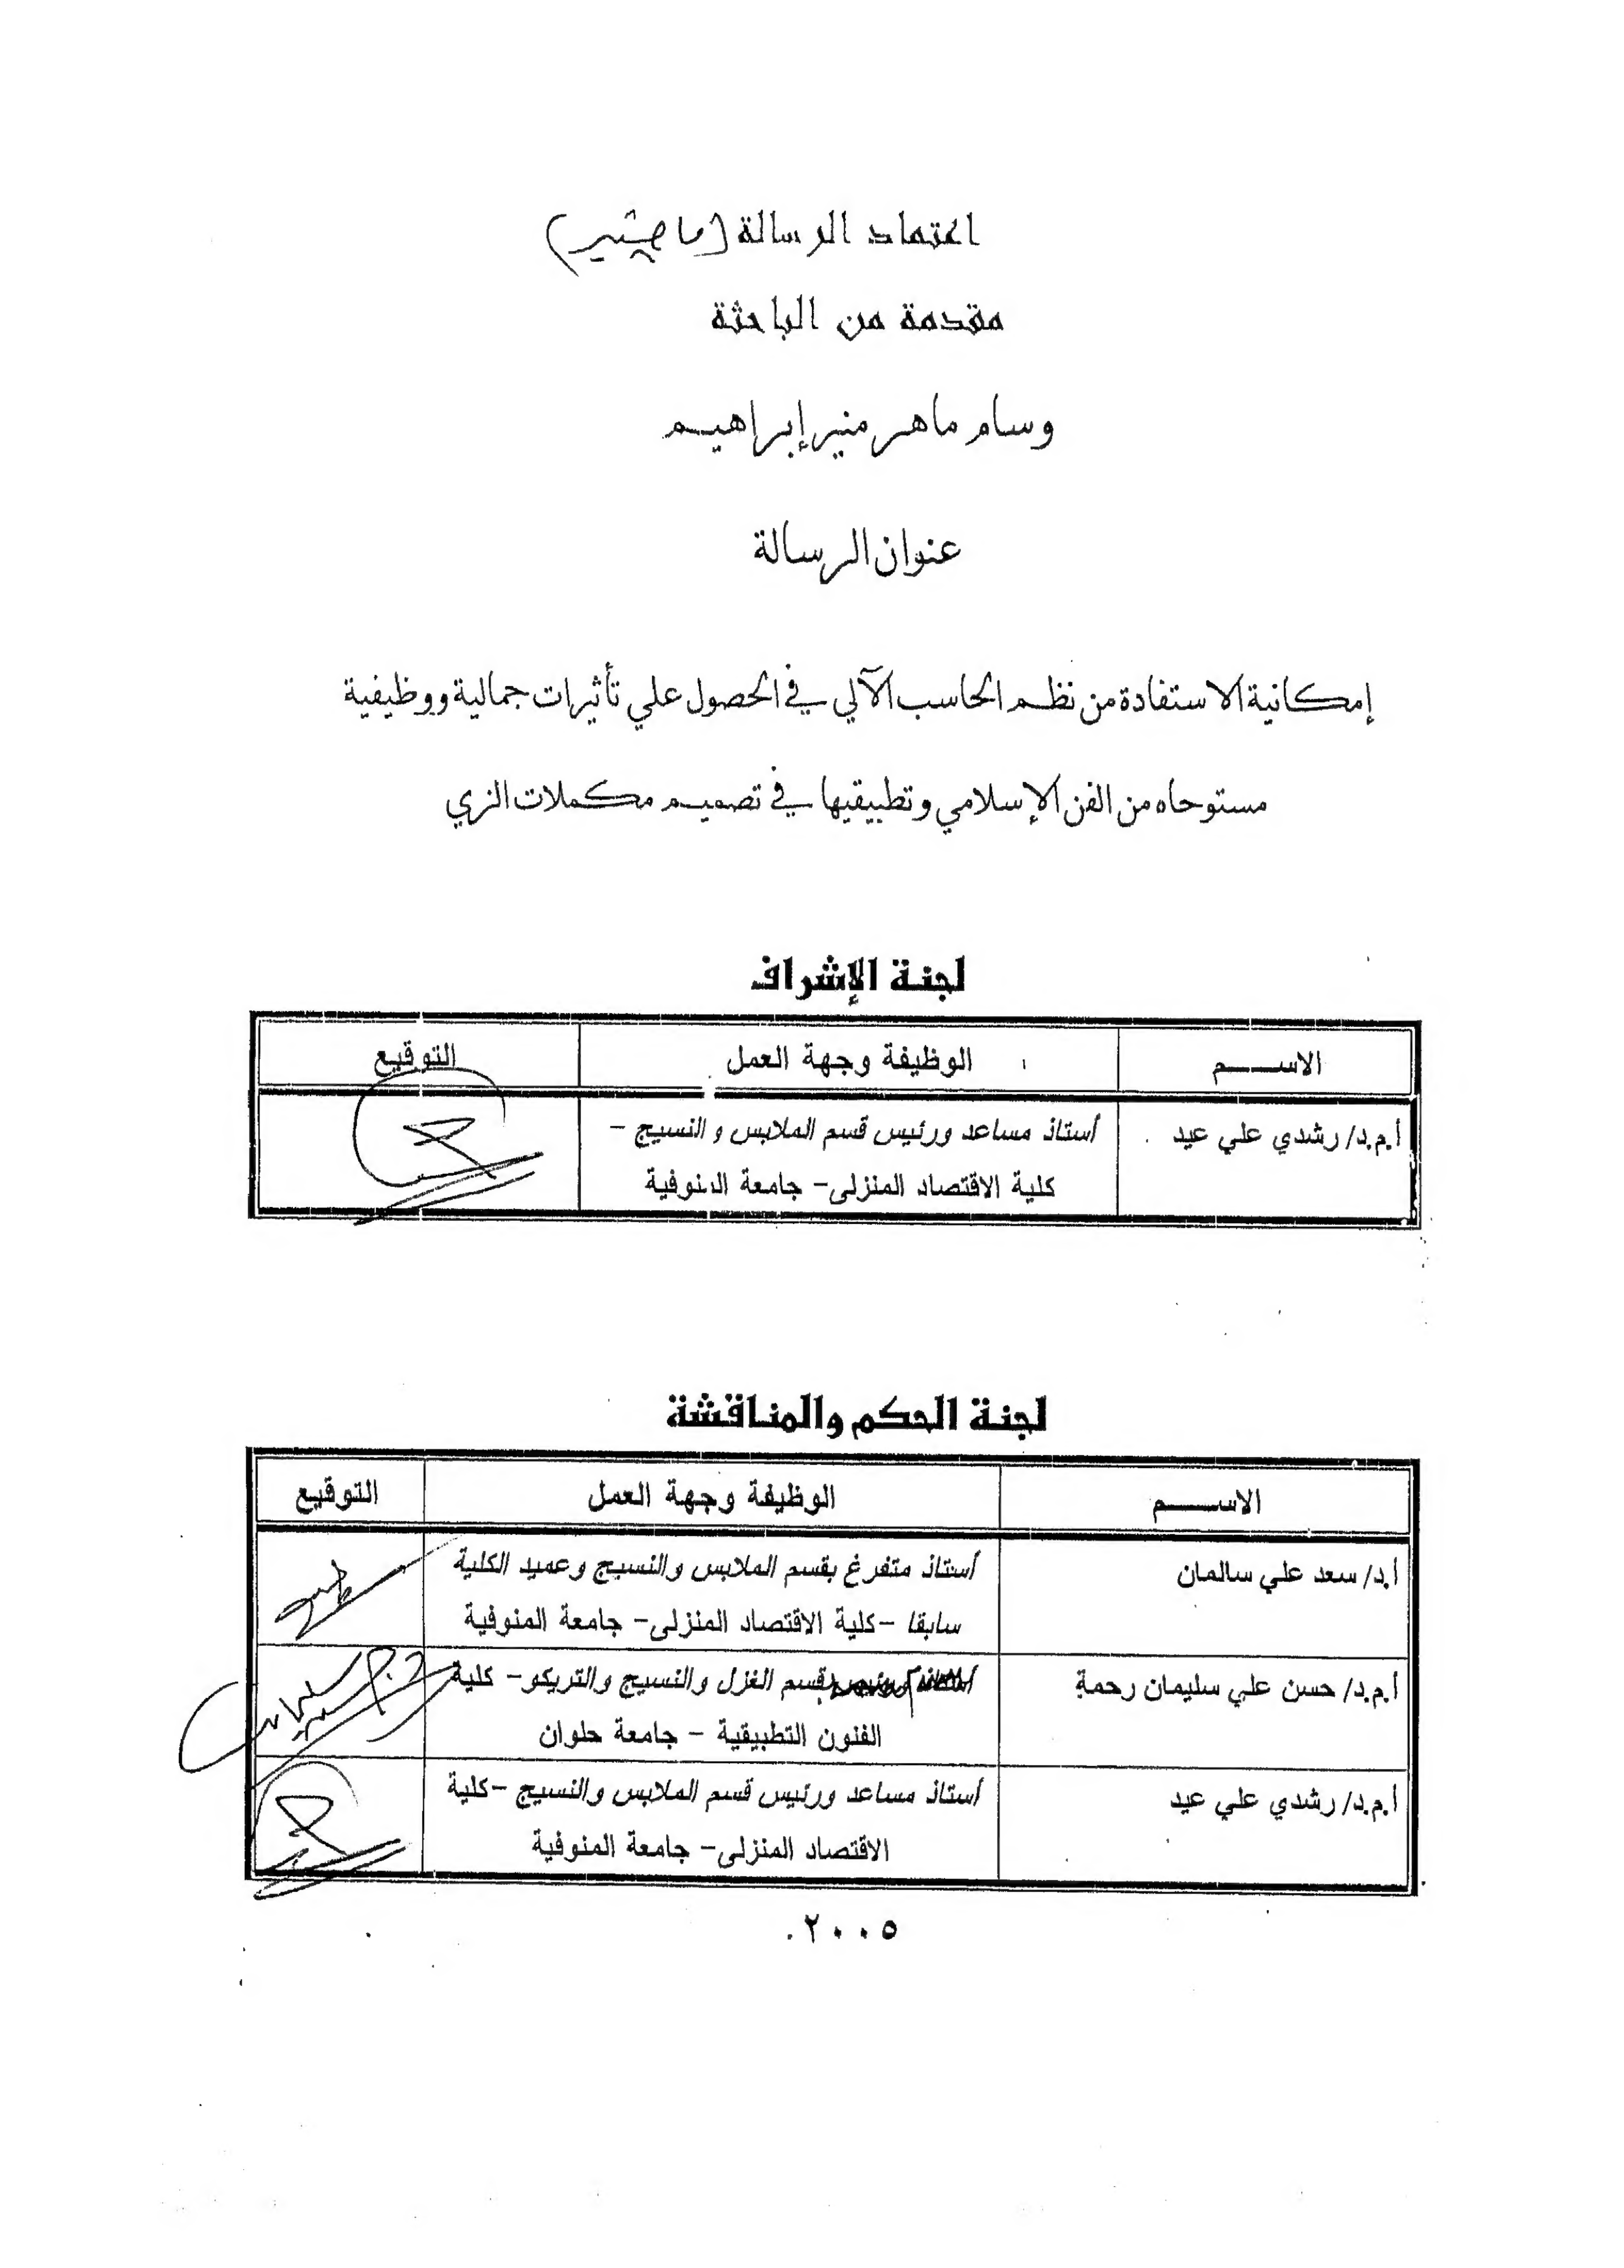 اعتماد الرسالة (ماجستير)
مقدمة من الباحثة
وسام ماهر منير إبراهيم
عنوان الرسالة
إمكانية الاستفادة من نظم الحاسب الآلي في الحصول علي تأثيرات جمالية ووظيفية
مستوحاه من الفن الإسلامي وتطبيقيها في تصميم مكملات الزي
لجنة الإشراف
الاســـــم الوظيفة وجهة العمل التوقيع
أ.م.د/ رشدي علي عيد أستاذ مساعد ورئيس قسم الملابس والنسيج –
كلية الاقتصاد المنزلى– جامعة المنوفية
لجنة الحكم والمناقشة
الاســـــم الوظيفة وجهة العمل التوقيع
أ.د/ سعد علي سالمان أستاذ متفرغ بقسم الملابس والنسيج وعميد الكلية
سابقا –كلية الاقتصاد المنزلى– جامعة المنوفية
أ.م.د/ حسن علي سليمان رحمة بقسم الغزل والنسيج والتريكو– كلية
الفنون التطبيقية – جامعة حلوان
أ.م.د/ رشدي علي عيد أستاذ مساعد ورئيس قسم الملابس والنسيج –كلية
الاقتصاد المنزلى– جامعة المنوفية
٢٠٠٥.